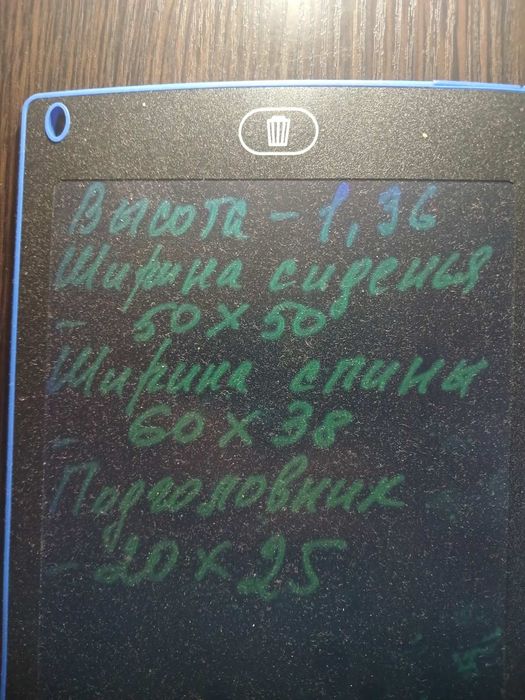 Высота - 1,36
Ширина сиденья
- 50 x 50
Ширина спины
- 60 x 38
Подголовник
- 20 x 25